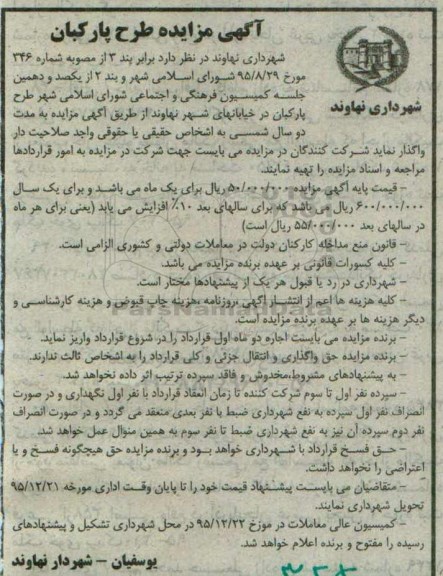 آگهی مزایده طرح پارکبان
شهرداری نهاوند
شهرداری نهاوند در نظر دارد برابر بند ۳ از مصوبه شماره ۳۴۶
مورخ ۹۵/۸/۲۹ شورای اسلامی شهر و بند ۲ از یکصد و دهمین
جلسه کمیسیون فرهنگی و اجتماعی شورای اسلامی شهر طرح
پارکبان در خیابانهای شهر نهاوند از طریق آگهی مزایده به مدت
دو سال شمسی به اشخاص حقیقی یا حقوقی واجد صلاحیت دار
واگذار نماید شرکت کنندگان در مزایده می بایست جهت شرکت در مزایده به امور قراردادها
مراجعه و اسناد مزایده را تهیه نمایند.
- قیمت پایه آگهی مزایده ۵۰/۰۰۰/۰۰۰ ریال برای یک ماه می باشد و برای یک سال
۶۰۰/۰۰۰/۰۰۰ ریال می باشد که برای سالهای بعد ۱۰٪ افزایش می یابد (یعنی برای هر ماه
در سالهای بعد ۵۵/۰۰۰/۰۰۰ ریال است)
- قانون منع مداخله کارکنان دولت در معاملات دولتی و کشوری الزامی است.
- کلیه کسورات قانونی بر عهده برنده مزایده می باشد.
- شهرداری در رد یا قبول هر یک از پیشنهادها مختار است.
- کلیه هزینه ها اعم از انتشار آگهی روزنامه، هزینه چاپ قبوض و هزینه کارشناسی و
دیگر هزینه ها بر عهده برنده مزایده است.
- برنده مزایده می بایست اجاره دو ماه اول قرارداد را در شروع قرارداد واریز نماید.
- برنده مزایده حق واگذاری و انتقال جزئی و کلی قرارداد را به اشخاص ثالث ندارند.
- به پیشنهادهای مشروط، مخدوش و فاقد سپرده ترتیب اثر داده نخواهد شد.
- سپرده نفر اول تا سوم شرکت کننده تا زمان انعقاد قرارداد با نفر اول نگهداری و در صورت
انصراف نفر اول سپرده به نفع شهرداری ضبط یا نفر بعدی منعقد می گردد و در صورت انصراف
نفر دوم سپرده آن نیز به نفع شهرداری ضبط تا نفر سوم به همین منوال عمل خواهد شد.
- حق فسخ قرارداد با شهرداری خواهد بود و برنده مزایده حق هیچگونه فسخ و یا
اعتراضی را نخواهد داشت.
- متقاضیان می بایست پیشنهاد قیمت خود را تا پایان وقت اداری مورخه ۹۵/۱۲/۲۱
تحویل شهرداری نمایند.
- کمیسیون عالی معاملات در مورخ ۹۵/۱۲/۲۲ در محل شهرداری تشکیل و پیشنهادهای
رسیده را مفتوح و برنده اعلام خواهد شد.
یوسفیان - شهردار نهاوند